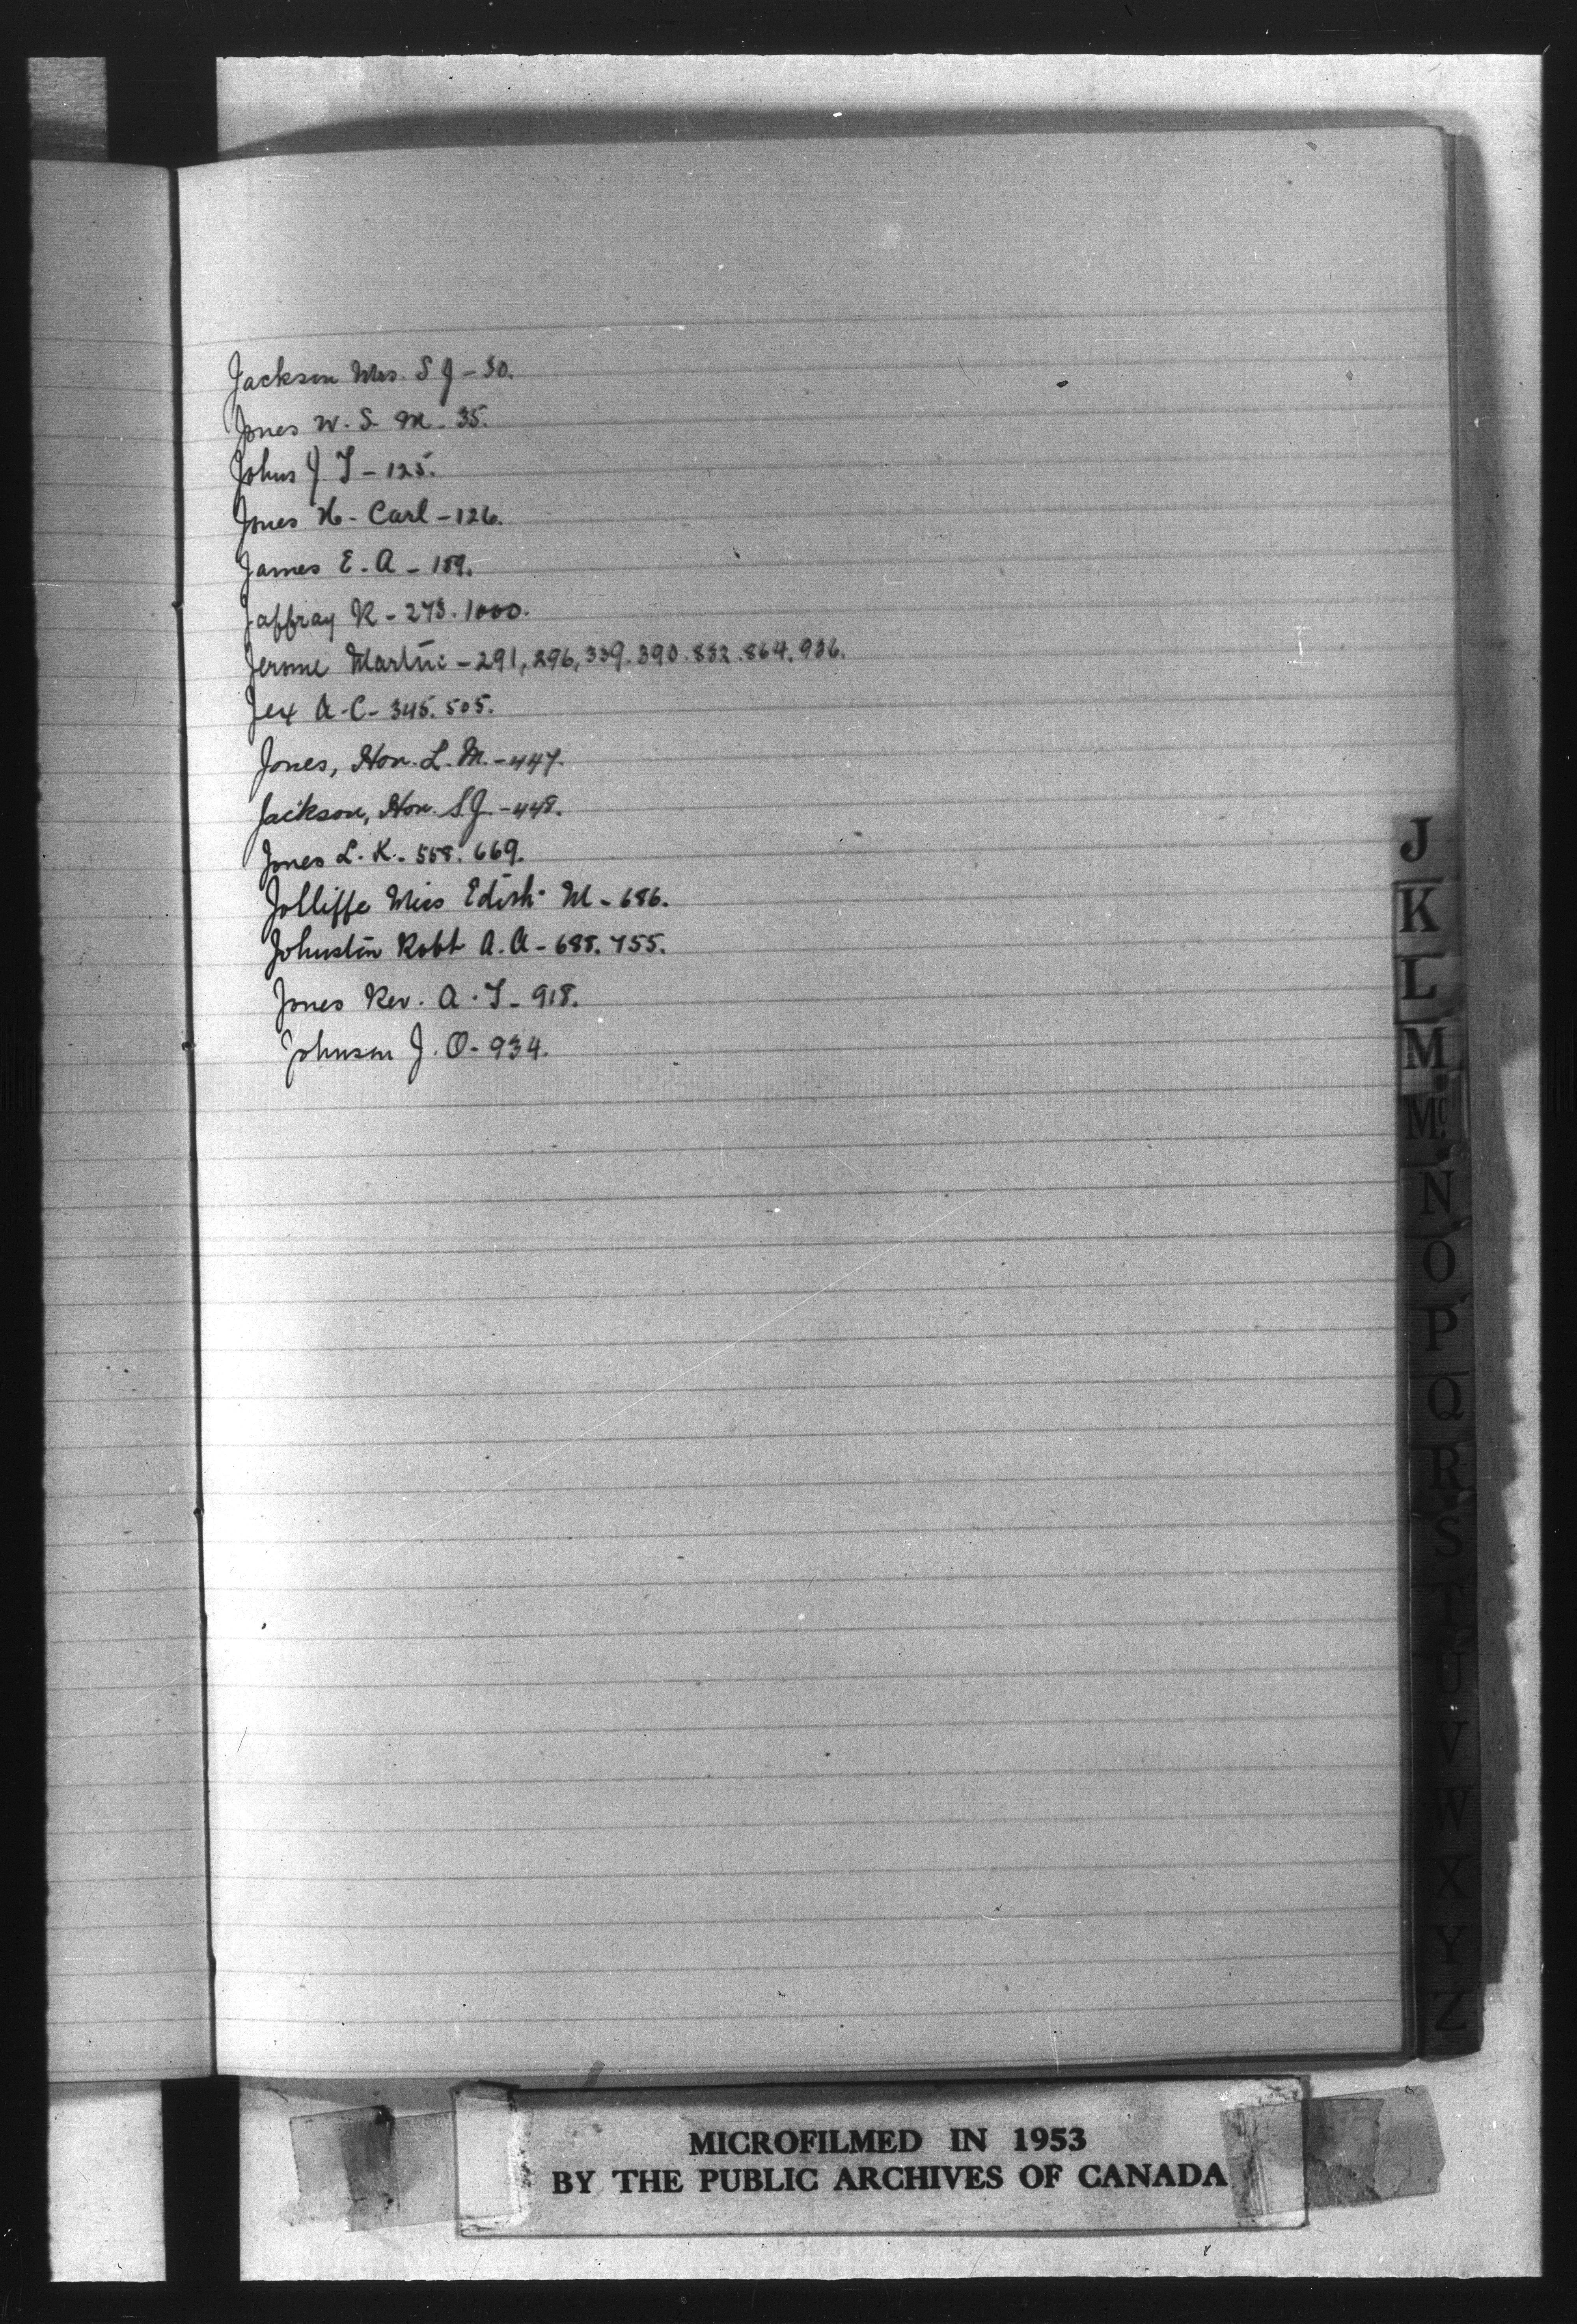 Jackson Mrs. S J - 30.
Jones W. S. M. 35.
Johns J. T - 125.
Jones H. Carl - 126.
James E. A - 189.
Jaffray R - 273. 1000.
Jerome Martin - 291, 296, 339. 390. 832. 864. 936.
Jex A. C - 345. 505.
Jones, Hon. L. M. - 447.
Jackson, Hon. S. J. - 448.
Jones L. K. 558. 669.
Jolliffe Miss Edith M - 686.
Johnston Robt A. A - 688. 755.
Jones Rev. A. T - 918.
Johnson J. O - 934.
J
K
L
M
Mc
N
O
P
Q
R
S
T
U
V
W
X
Y
Z
MICROFILMED IN 1953
BY THE PUBLIC ARCHIVES OF CANADA